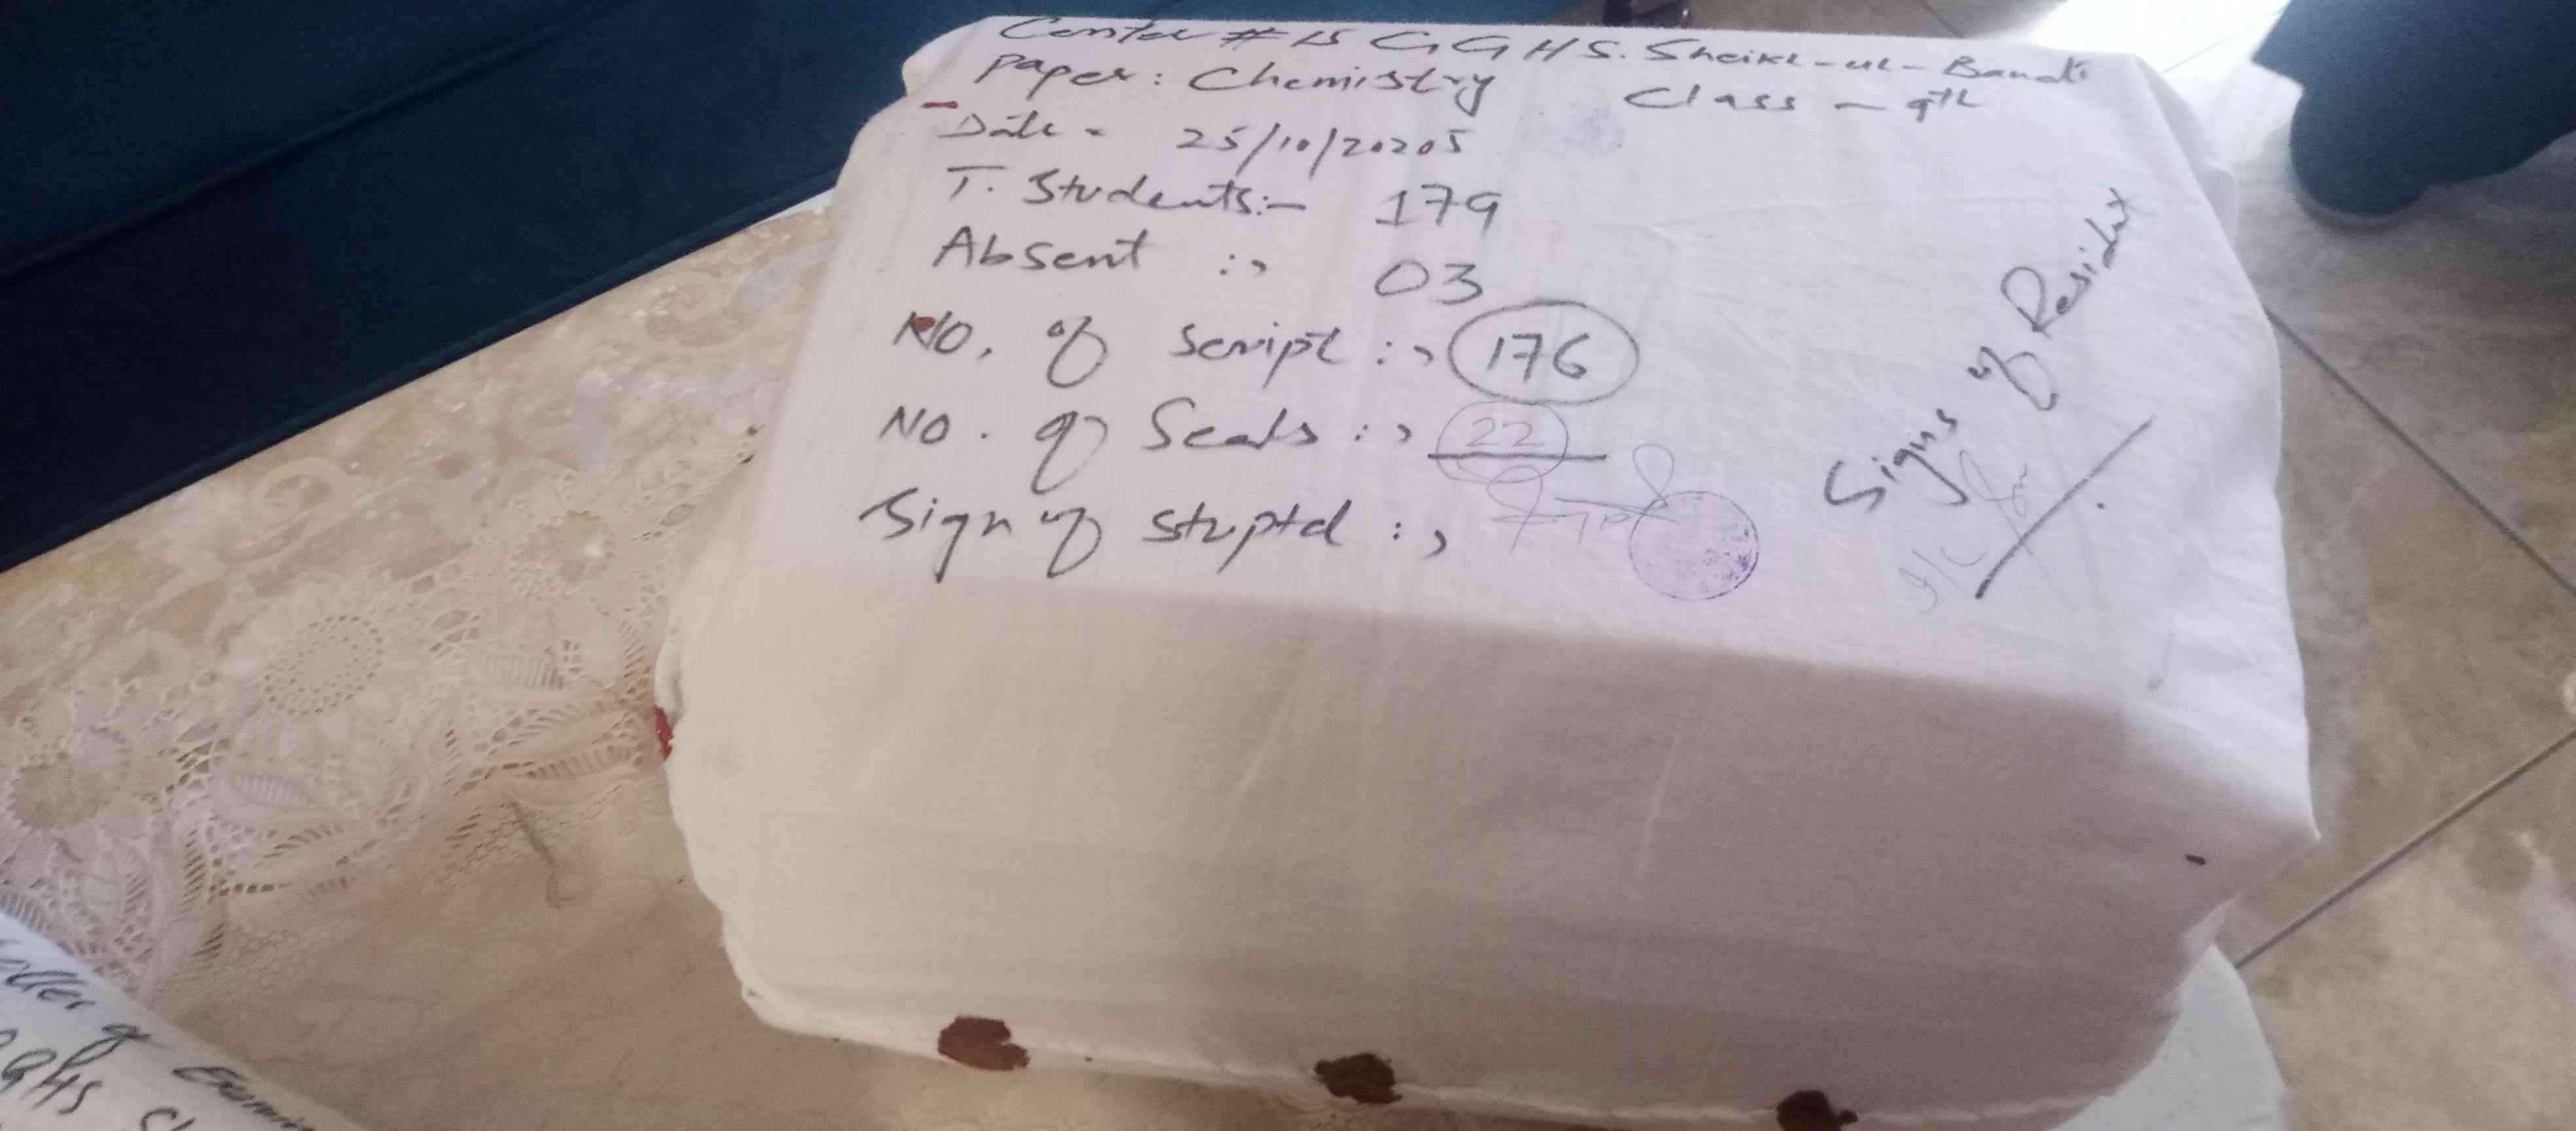 Center # 15 GGHS. Sheikh-ul-Bandi
Paper: Chemistry Class - 9th
Date = 25/10/20205
T. Students:- 179
Absent :, 03
NO. of script :, 176
NO. of Seals :, 22
Sign of stuptd :,
Signs of Resident
oller of Examin
GGHS